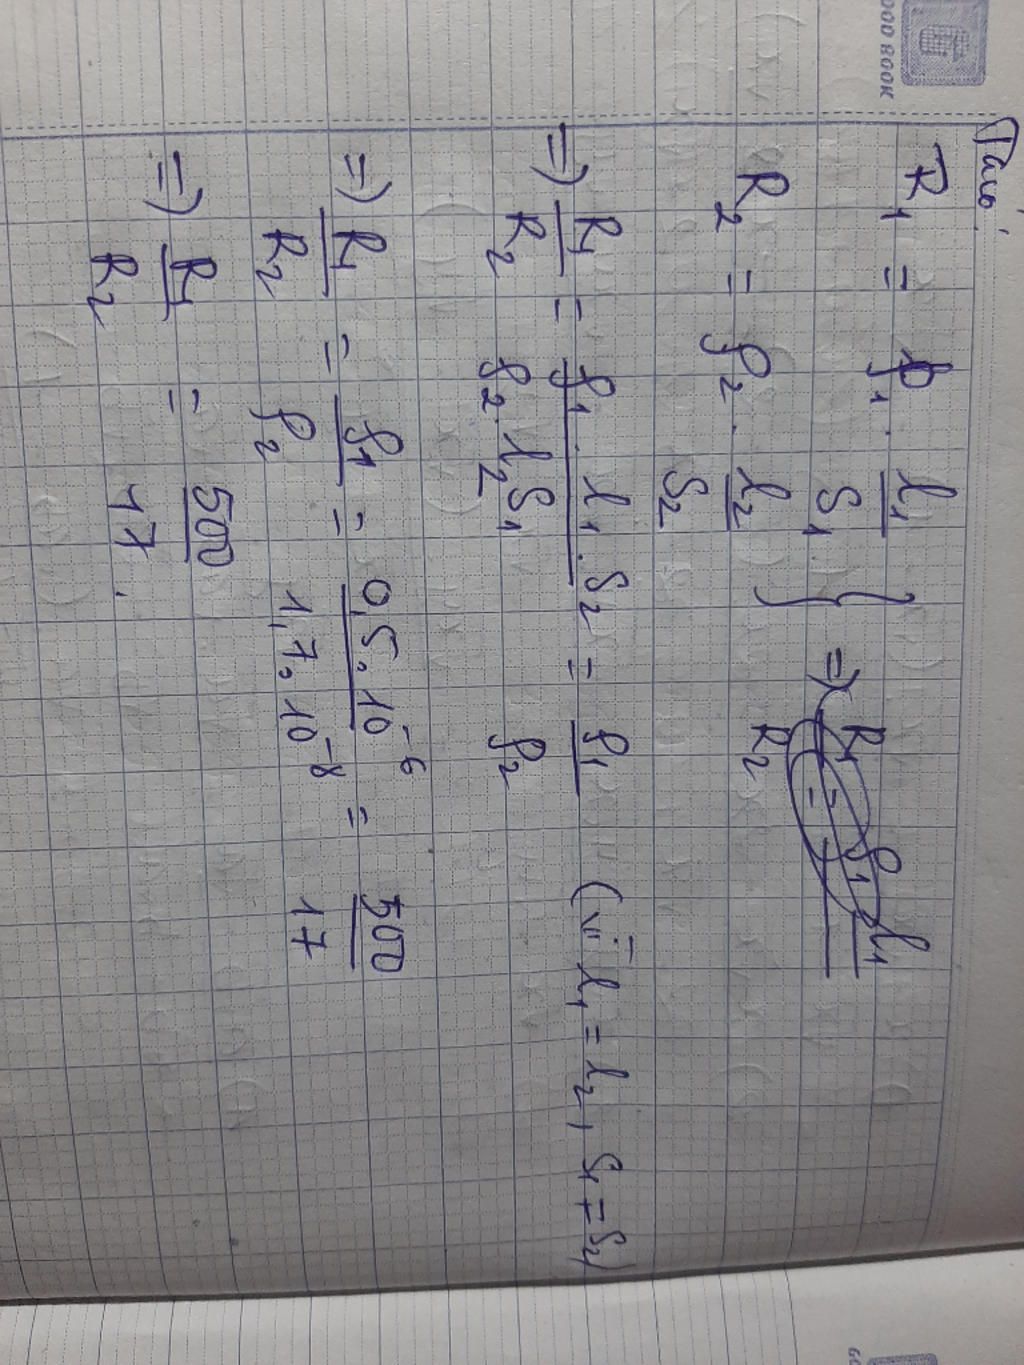 R₁ = ρ₁ . l₁/S₁
R₂ = ρ₂ . l₂/S₂ } => R₁/R₂ =
=> R₁/R₂ = ρ₁ . l₁ . S₂ / ρ₂ . l₂ S₁ = ρ₁/ρ₂ (vì l₁ = l₂, S₁ = S₂)
=> R₁/R₂ = ρ₁/ρ₂ = 0,5.10⁻⁶ / 1,7.10⁻⁸ = 500/17
=> R₁/R₂ = 500/17.